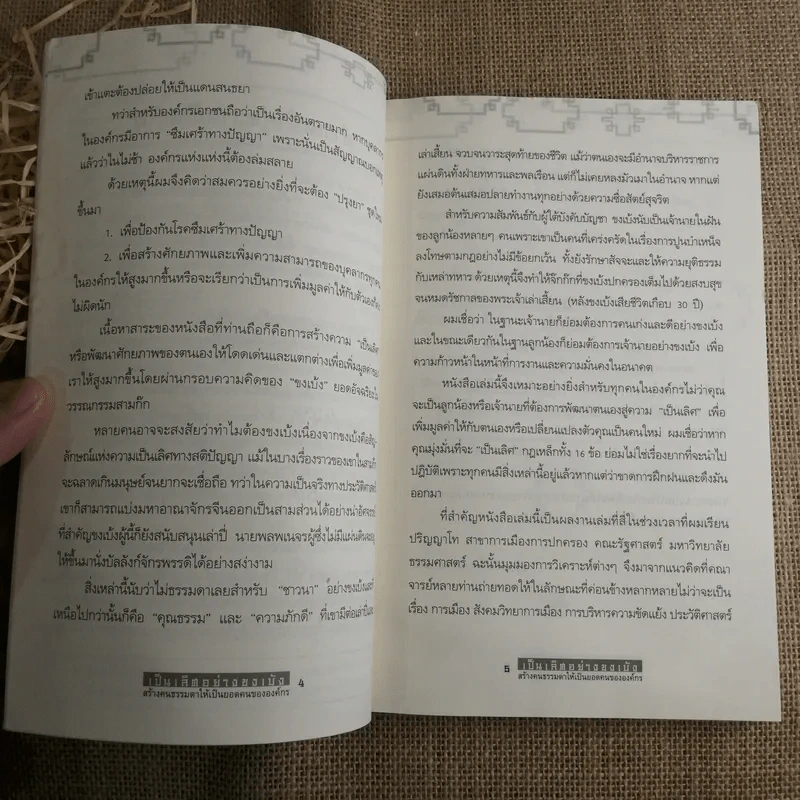 เข้าแตะต้องปล่อยให้เป็นแดนสนธยา
ทว่าสำหรับองค์กรเอกชนถือว่าเป็นเรื่องอันตรายมาก หากบุคลากร
ในองค์กรมีอาการ "ซึมเศร้าทางปัญญา" เพราะนั่นเป็นสัญญาณบอกเหตุ
แล้วว่าในไม่ช้า องค์กรแห่งแห่งนี้ต้องล่มสลาย
ด้วยเหตุนี้ผมจึงคิดว่าสมควรอย่างยิ่งที่จะต้อง "ปรุงยา" ชุดใหม่
ขึ้นมา
1. เพื่อป้องกันโรคซึมเศร้าทางปัญญา
2. เพื่อสร้างศักยภาพและเพิ่มความสามารถของบุคลากรทุกคน
ในองค์กรให้สูงมากขึ้นหรือจะเรียกว่าเป็นการเพิ่มมูลค่าให้กับตัวเองก็คง
ไม่ผิดนัก
เนื้อหาสาระของหนังสือที่ท่านถือก็คือการสร้างความ "เป็นเลิศ"
หรือพัฒนาศักยภาพของตนเองให้โดดเด่นและแตกต่างเพื่อเพิ่มมูลค่าของ
เราให้สูงมากขึ้นโดยผ่านกรอบความคิดของ "ขงเบ้ง" ยอดอัจฉริยะใน
วรรณกรรมสามก๊ก
หลายคนอาจจะสงสัยว่าทำไมต้องขงเบ้งเนื่องจากขงเบ้งคือสัญ
ลักษณ์แห่งความเป็นเลิศทางสติปัญญา แม้ในบางเรื่องราวของเขาในสามก๊ก
จะฉลาดเกินมนุษย์จนยากจะเชื่อถือ ทว่าในความเป็นจริงทางประวัติศาสตร์
เขาก็สามารถแบ่งมหาอาณาจักรจีนออกเป็นสามส่วนได้อย่างน่าอัศจรรย์
ที่สำคัญขงเบ้งผู้นี้ก็ยังสนับสนุนเล่าปี่ นายพลพเนจรผู้ซึ่งไม่มีแผ่นดินจะอยู่
ให้ขึ้นมานั่งบัลลังก์จักรพรรดิได้อย่างสง่างาม
สิ่งเหล่านี้นับว่าไม่ธรรมดาเลยสำหรับ "ชาวนา" อย่างขงเบ้งและที่
เหนือไปกว่านั้นก็คือ "คุณธรรม" และ "ความภักดี" ที่เขามีต่อเล่าปี่และ
เป็นเลิศอย่างขงเบ้ง 4
สร้างคนธรรมดาให้เป็นยอดคนขององค์กร
เล่าเสี้ยน จวบจนวาระสุดท้ายของชีวิต แม้ว่าตนเองจะมีอำนาจบริหารราชการ
แผ่นดินทั้งฝ่ายทหารและพลเรือน แต่ก็ไม่เคยหลงมัวเมาในอำนาจ หากแต่
ยังเสมอต้นเสมอปลายทำงานทุกอย่างด้วยความซื่อสัตย์สุจริต
สำหรับความสัมพันธ์กับผู้ใต้บังคับบัญชา ขงเบ้งนับเป็นเจ้านายในฝัน
ของลูกน้องหลายๆ คนเพราะเขาเป็นคนที่เคร่งครัดในเรื่องการปูนบำเหน็จ
ลงโทษตามกฎอย่างไม่มีข้อยกเว้น ทั้งยังรักษาสัจจะและให้ความยุติธรรม
กับเหล่าทหาร ด้วยเหตุนี้จึงทำให้จ๊กก๊กที่ขงเบ้งปกครองเต็มไปด้วยสงบสุข
จนหมดรัชกาลของพระเจ้าเล่าเสี้ยน (หลังขงเบ้งเสียชีวิตเกือบ 30 ปี)
ผมเชื่อว่า ในฐานะเจ้านายก็ย่อมต้องการคนเก่งและดีอย่างขงเบ้ง
และในขณะเดียวกันในฐานลูกน้องก็ย่อมต้องการเจ้านายอย่างขงเบ้ง เพื่อ
ความก้าวหน้าในหน้าที่การงานและความมั่นคงในอนาคต
หนังสือเล่มนี้จึงเหมาะอย่างยิ่งสำหรับทุกคนในองค์กรไม่ว่าคุณ
จะเป็นลูกน้องหรือเจ้านายที่ต้องการพัฒนาตนเองสู่ความ "เป็นเลิศ" เพื่อ
เพิ่มมูลค่าให้กับตนเองหรือเปลี่ยนแปลงตัวคุณเป็นคนใหม่ ผมเชื่อว่าหาก
คุณมุ่งมั่นที่จะ "เป็นเลิศ" กฎเหล็กทั้ง 16 ข้อ ย่อมไม่ใช่เรื่องยากที่จะนำไป
ปฏิบัติเพราะทุกคนมีสิ่งเหล่านี้อยู่แล้วหากแต่ว่าขาดการฝึกฝนและดึงมัน
ออกมา
ที่สำคัญหนังสือเล่มนี้เป็นผลงานเล่มที่สี่ในช่วงเวลาที่ผมเรียน
ปริญญาโท สาขาการเมืองการปกครอง คณะรัฐศาสตร์ มหาวิทยาลัย
ธรรมศาสตร์ ฉะนั้นมุมมองการวิเคราะห์ต่างๆ จึงมาจากแนวคิดที่คณา
จารย์หลายท่านถ่ายทอดให้ในลักษณะที่ค่อนข้างหลากหลายไม่ว่าจะเป็น
เรื่อง การเมือง สังคมวิทยาการเมือง การบริหารความขัดแย้ง ประวัติศาสตร์
5 เป็นเลิศอย่างขงเบ้ง
สร้างคนธรรมดาให้เป็นยอดคนขององค์กร